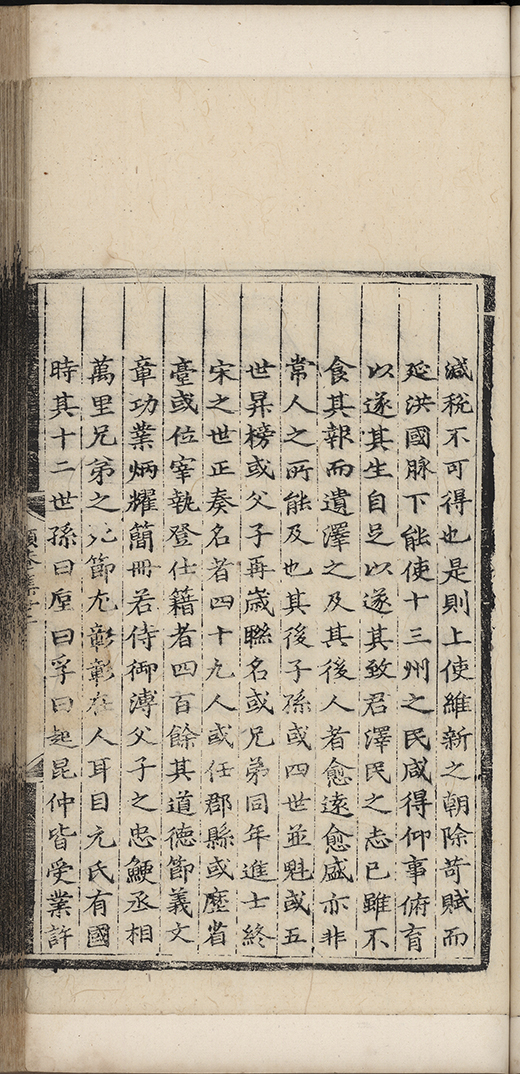 減稅不可得也是則上使維新之朝除苛賦而
延洪國脉下能使十三州之民咸得仰事俯育
以遂其生自足以遂其致君澤民之志已雖不
食其報而遺澤之及其後人者愈遠愈盛亦非
常人之所能及也其後子孫或四世並魁或五
世昇榜或父子再歲聯名或兄弟同年進士終
宋之世正奏名者四十九人或任郡縣或歷省
臺或位宰執登仕籍者四百餘其道德節義文
章功業炳耀簡冊若侍御溥父子之忠鯁丞相
萬里兄弟之死節尤彰彰在人耳目元氏有國
時其十二世孫曰孚曰起昆仲皆受業許